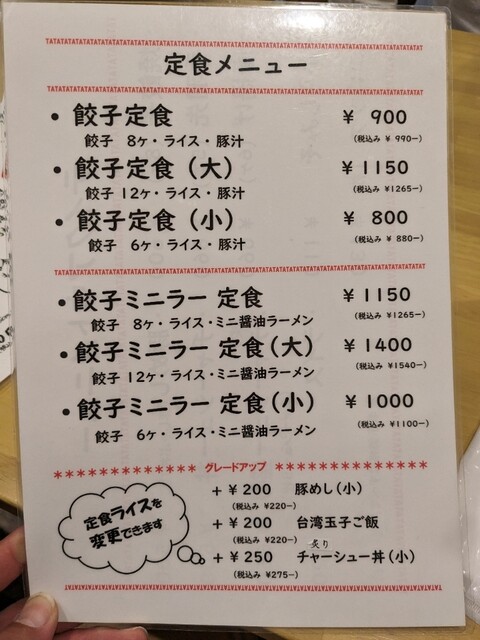 TATATATATATATATATATATATATATATATATATATATATATATATATATATATATATATATATATAT
定食メニュー
TATATATATATATATATATATATATATATATATATATATATATATATATATATATATATATATATATAT
・餃子定食 ￥ 900
餃子 8ヶ・ライス・豚汁 (税込み ￥ 990−)
・餃子定食（大） ￥1150
餃子 12ヶ・ライス・豚汁 (税込み ￥1265−)
・餃子定食（小） ￥ 800
餃子 6ヶ・ライス・豚汁 (税込み ￥ 880−)
TATATATATATATATATATATATATATATATATATATATATATATATATATATATATATATATATATAT
・餃子ミニラー 定食 ￥1150
餃子 8ヶ・ライス・ミニ醤油ラーメン (税込み ￥1265−)
・餃子ミニラー 定食（大） ￥1400
餃子 12ヶ・ライス・ミニ醤油ラーメン (税込み ￥1540−)
・餃子ミニラー 定食（小） ￥1000
餃子 6ヶ・ライス・ミニ醤油ラーメン (税込み ￥1100−)
************* グレードアップ **************
定食ライスを
変更できます
＋￥200 豚めし（小）
(税込み ￥220−)
＋￥200 台湾玉子ご飯
(税込み ￥220−)
炙り
＋￥250 チャーシュー丼（小）
(税込み ￥275−)
TATATATATATATATATATATATATATATATATATATATATATATATATATATATATATATATATATAT